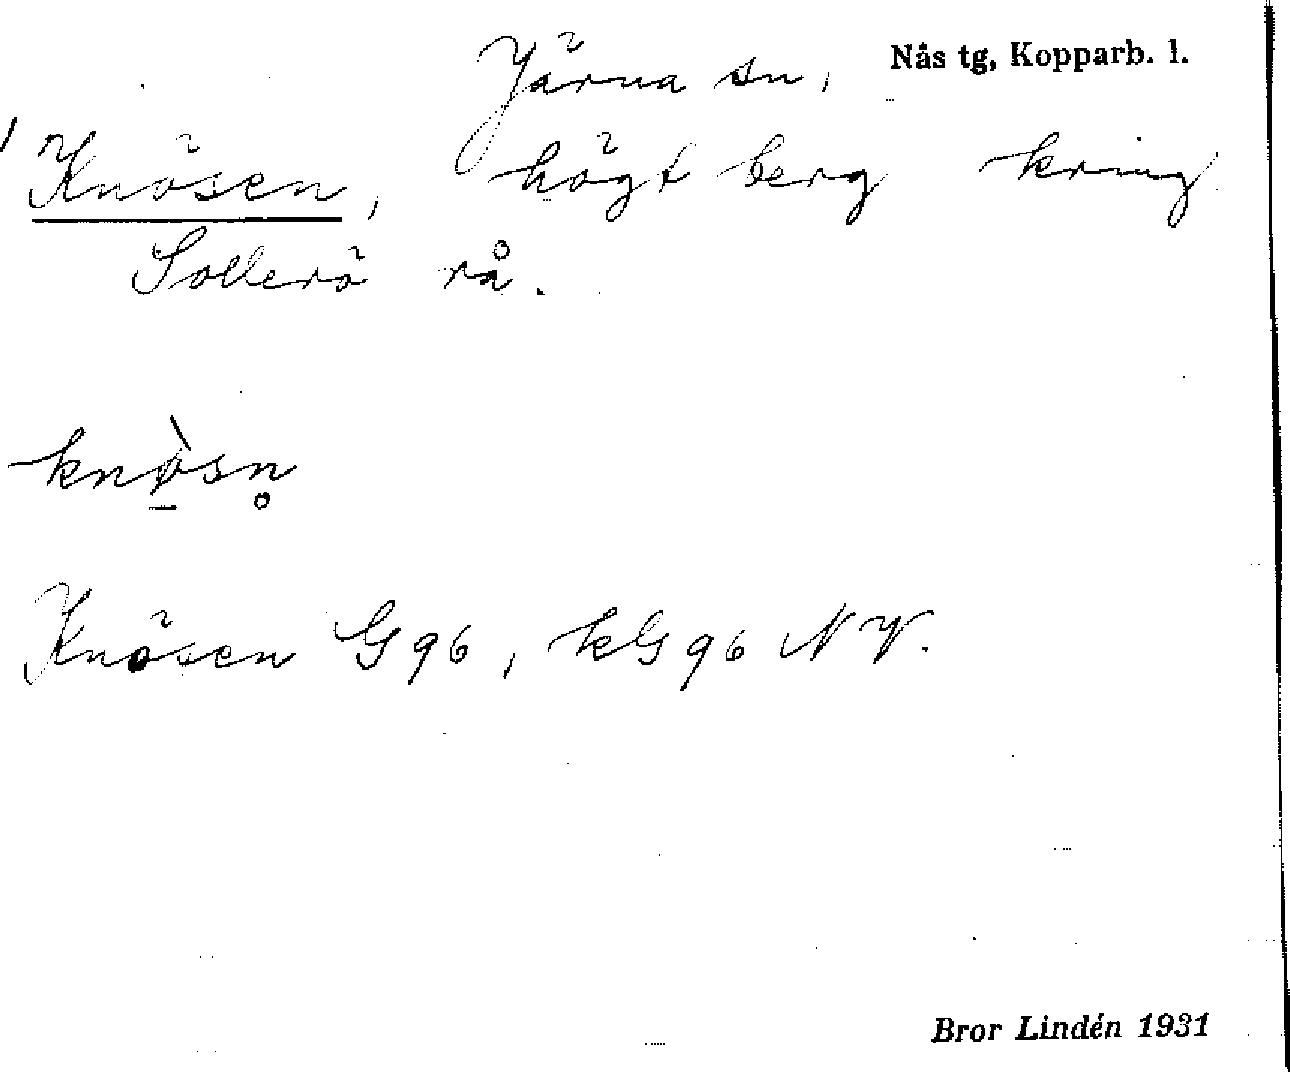 Järna sn, Nås tg, Kopparb. l.
Knösen, högt berg kring
Sollerö rå.
knø̠̀sn̥
Knösen G96, kG96 NV.
Bror Lindén 1931